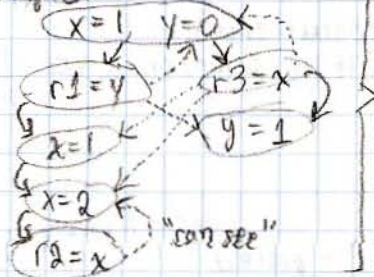 x=1 y=0
r1=y r3=x
x=1 y=1
x=2
r2=x "can see"